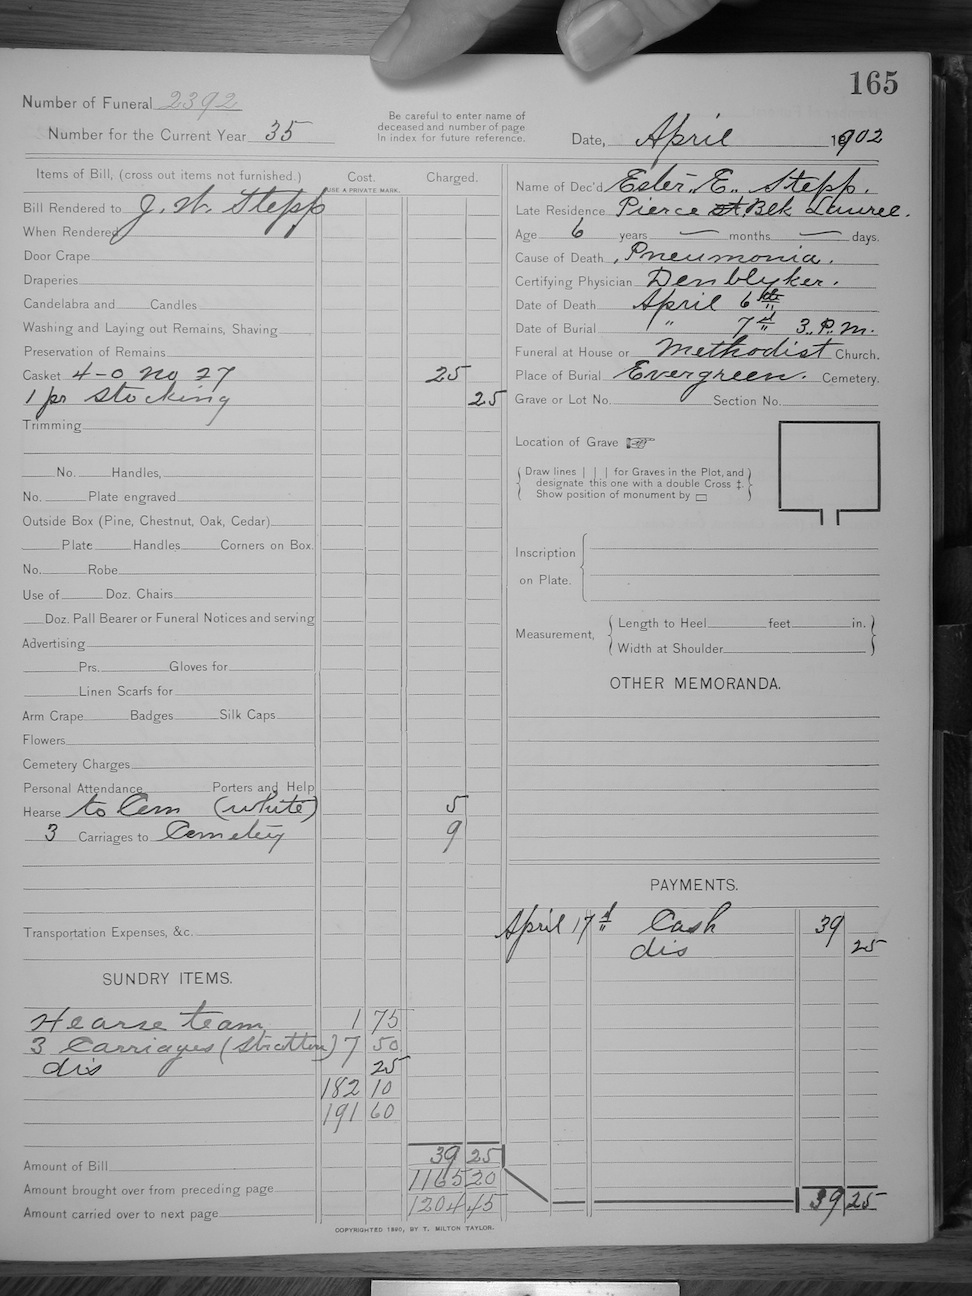 165
Number of Funeral 2392
Number for the Current Year 35
Be careful to enter name of
deceased and number of page
In index for future reference.
Date, April 1902
Items of Bill, (cross out items not furnished.) Cost. Charged.
USE A PRIVATE MARK.
Bill Rendered to J. W. Stepp
When Rendered
Door Crape
Draperies
Candelabra and Candles
Washing and Laying out Remains, Shaving
Preservation of Remains
Casket 4-0 no 27 25
1 pr stocking 25
Trimming
No. Handles,
No. Plate engraved
Outside Box (Pine, Chestnut, Oak, Cedar)
Plate Handles Corners on Box.
No. Robe
Use of Doz. Chairs
Doz. Pall Bearer or Funeral Notices and serving
Advertising
Prs. Gloves for
Linen Scarfs for
Arm Crape Badges Silk Caps
Flowers
Cemetery Charges
Personal Attendance Porters and Help
Hearse to Cem (white) 5
3 Carriages to Cemetery 9
Transportation Expenses, &c.
SUNDRY ITEMS.
Hearse team 1 75
3 Carriages (Stratton) 7 50
dis 25
182 10
191 60
Amount of Bill 39 25
Amount brought over from preceding page 1165 20
Amount carried over to next page 1204 45
Name of Dec'd Esler. E. Stepp.
Late Residence Pierce st. Blk Laurel.
Age 6 years — months — days.
Cause of Death Pneumonia.
Certifying Physician Denblyker.
Date of Death April 6
Date of Burial " 7 3. P. M.
Funeral at House or Methodist Church.
Place of Burial Evergreen. Cemetery.
Grave or Lot No. Section No.
Location of Grave
Draw lines | | | for Graves in the Plot, and
designate this one with a double Cross ‡.
Show position of monument by ▭
Inscription
on Plate.
Measurement, Length to Heel feet in.
Width at Shoulder
OTHER MEMORANDA.
PAYMENTS.
April 17 Cash 39
dis 25
39 25
COPYRIGHTED 1890, BY T. MILTON TAYLOR.